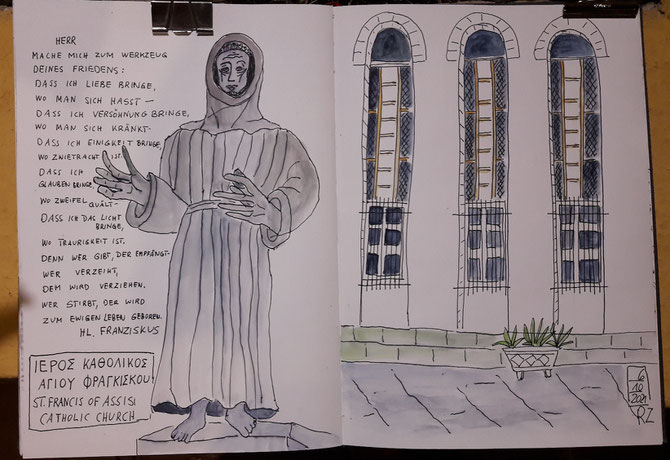 HERR
MACHE MICH ZUM WERKZEUG
DEINES FRIEDENS:
DASS ICH LIEBE BRINGE,
WO MAN SICH HASST –
DASS ICH VERSÖHNUNG BRINGE,
WO MAN SICH KRÄNKT-
DASS ICH EINIGKEIT BRINGE,
WO ZWIETRACHT IST.
DASS ICH
GLAUBEN BRINGE,
WO ZWEIFEL QUÄLT-
DASS ICH DAS LICHT
BRINGE,
WO TRAURIGKEIT IST.
DENN WER GIBT, DER EMPFÄNGT-
WER VERZEIHT,
DEM WIRD VERZIEHEN.
WER STIRBT, DER WIRD
ZUM EWIGEN LEBEN GEBOREN.
HL. FRANZISKUS
ΙΕΡΟΣ ΚΑΘΟΛΙΚΟΣ
ΑΓΙΟΥ ΦΡΑΓΚΙΣΚΟΥ
ST. FRANCIS OF ASSISI
CATHOLIC CHURCH
6
10
2021
RZ